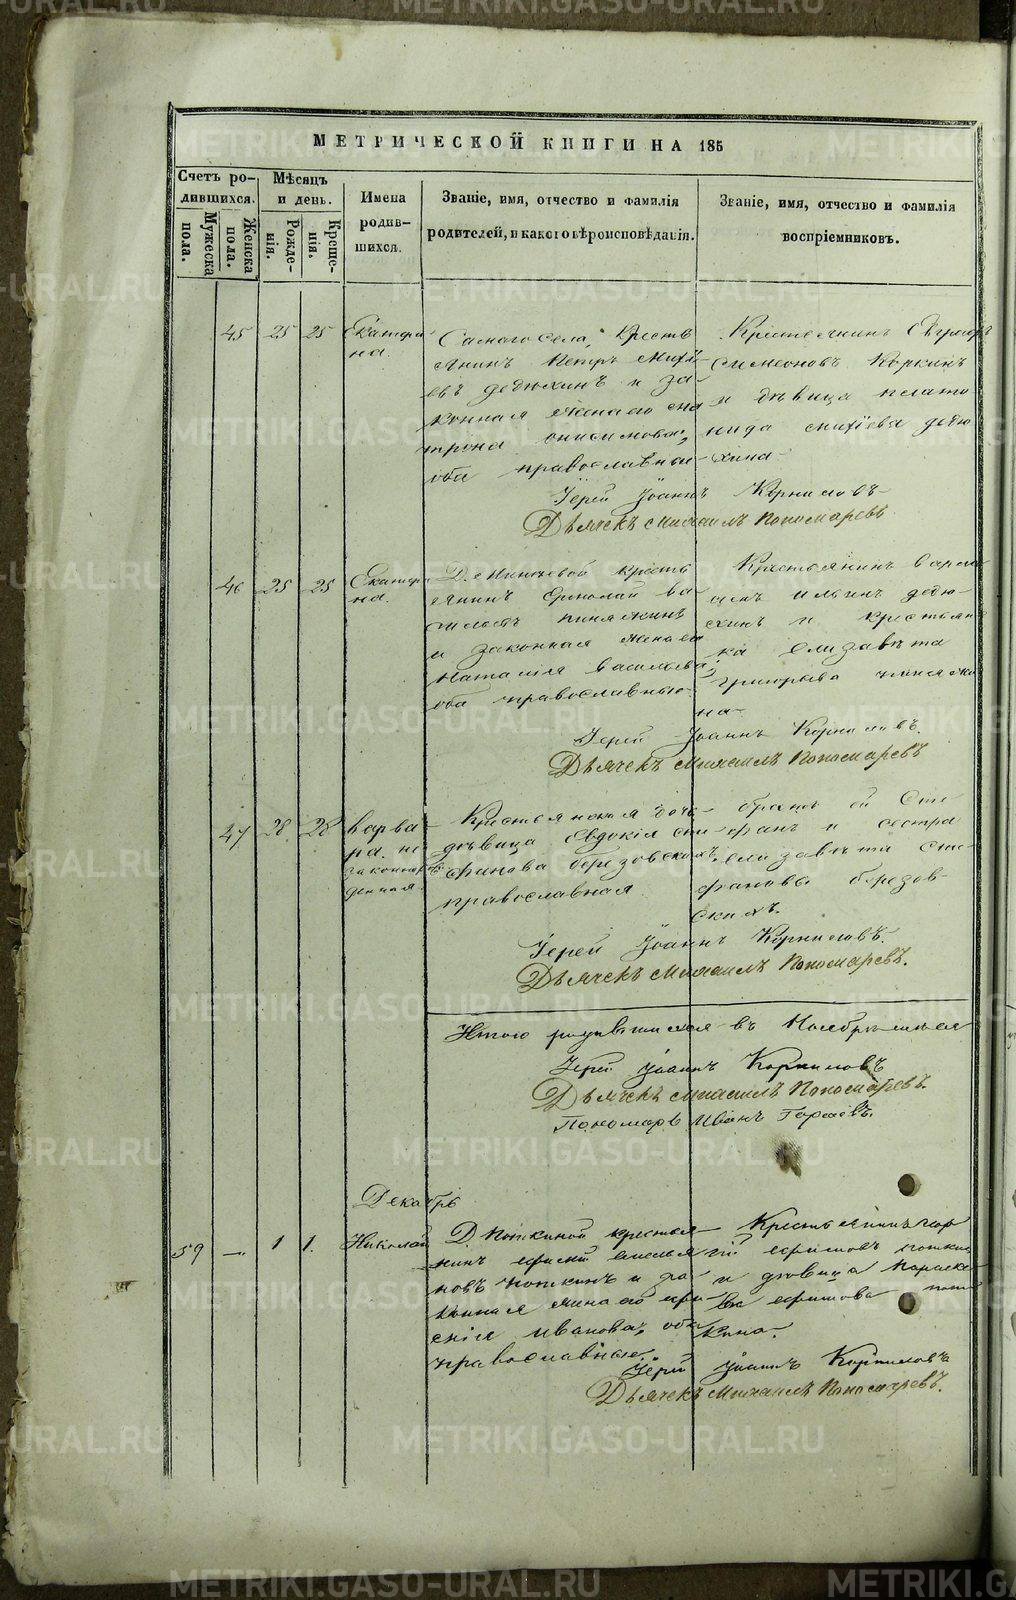 МЕТРИЧЕСКОЙ КНИГИ НА 185
Счетъ ро-
дившихся.
Мѣсяцъ
и день.
Мужеска
пола.
Женска
пола.
Рожде-
нія.
Креще-
нія.
Имена
родив-
шихся.
Званіе, имя, отчество и фамилія
родителей, и какого вѣроисповѣданія.
Званіе, имя, отчество и фамилія
воспріемниковъ.
45 25 25 Екатери
на.
Самаго села, кресть
янинъ Петръ Михѣ
евъ Дедюхинъ и за-
конная жена его
Онисимова,
оба православныи
Крестьянинъ
Симеоновъ Коркинъ
и дѣвица
нида Михѣева Дедю
хина
Іерей Іоаннъ Корниловъ
Дьячекъ Михаилъ Пономаревъ
46 25 25 Екатери
на.
кресть
янинъ Ва
и законная жена его
Наталія Васильева,
оба православные
Крестьянинъ
Ильинъ Дедю-
хинъ и крестьян
ка Елизавета
на
Іерей Іоаннъ Корниловъ.
Дьячекъ Михаилъ Пономаревъ
47 28 28 Варва
ра. не
законнорож
денная.
Крестьянская дочь
дѣвица Евдокія Сте
фанова Березовскихъ,
православная
братъ ей Сте
фанъ и сестра
Елизавета Сте
фановы Березов-
скихъ.
Іерей Іоаннъ Корниловъ.
Дьячекъ Михаилъ Пономаревъ.
Итого родившихся въ Ноябрѣ
Іерей Іоаннъ Корниловъ
Дьячекъ Михаилъ Пономаревъ.
Пономарь Иванъ
Декабрь
59 — 1 1. Николай
Д. Поткиной крестья
нинъ Емелья
новъ Поткинъ и за
конная жена его
Иванова, оба
православные
Крестьянинъ
Ефимовъ Поткин
и дѣвица Параске
ва Ефимова Пот
кина.
Іерей Іоаннъ Корниловъ
Дьячекъ Михаилъ Пономаревъ.
METRIKI.GASO-URAL.RU